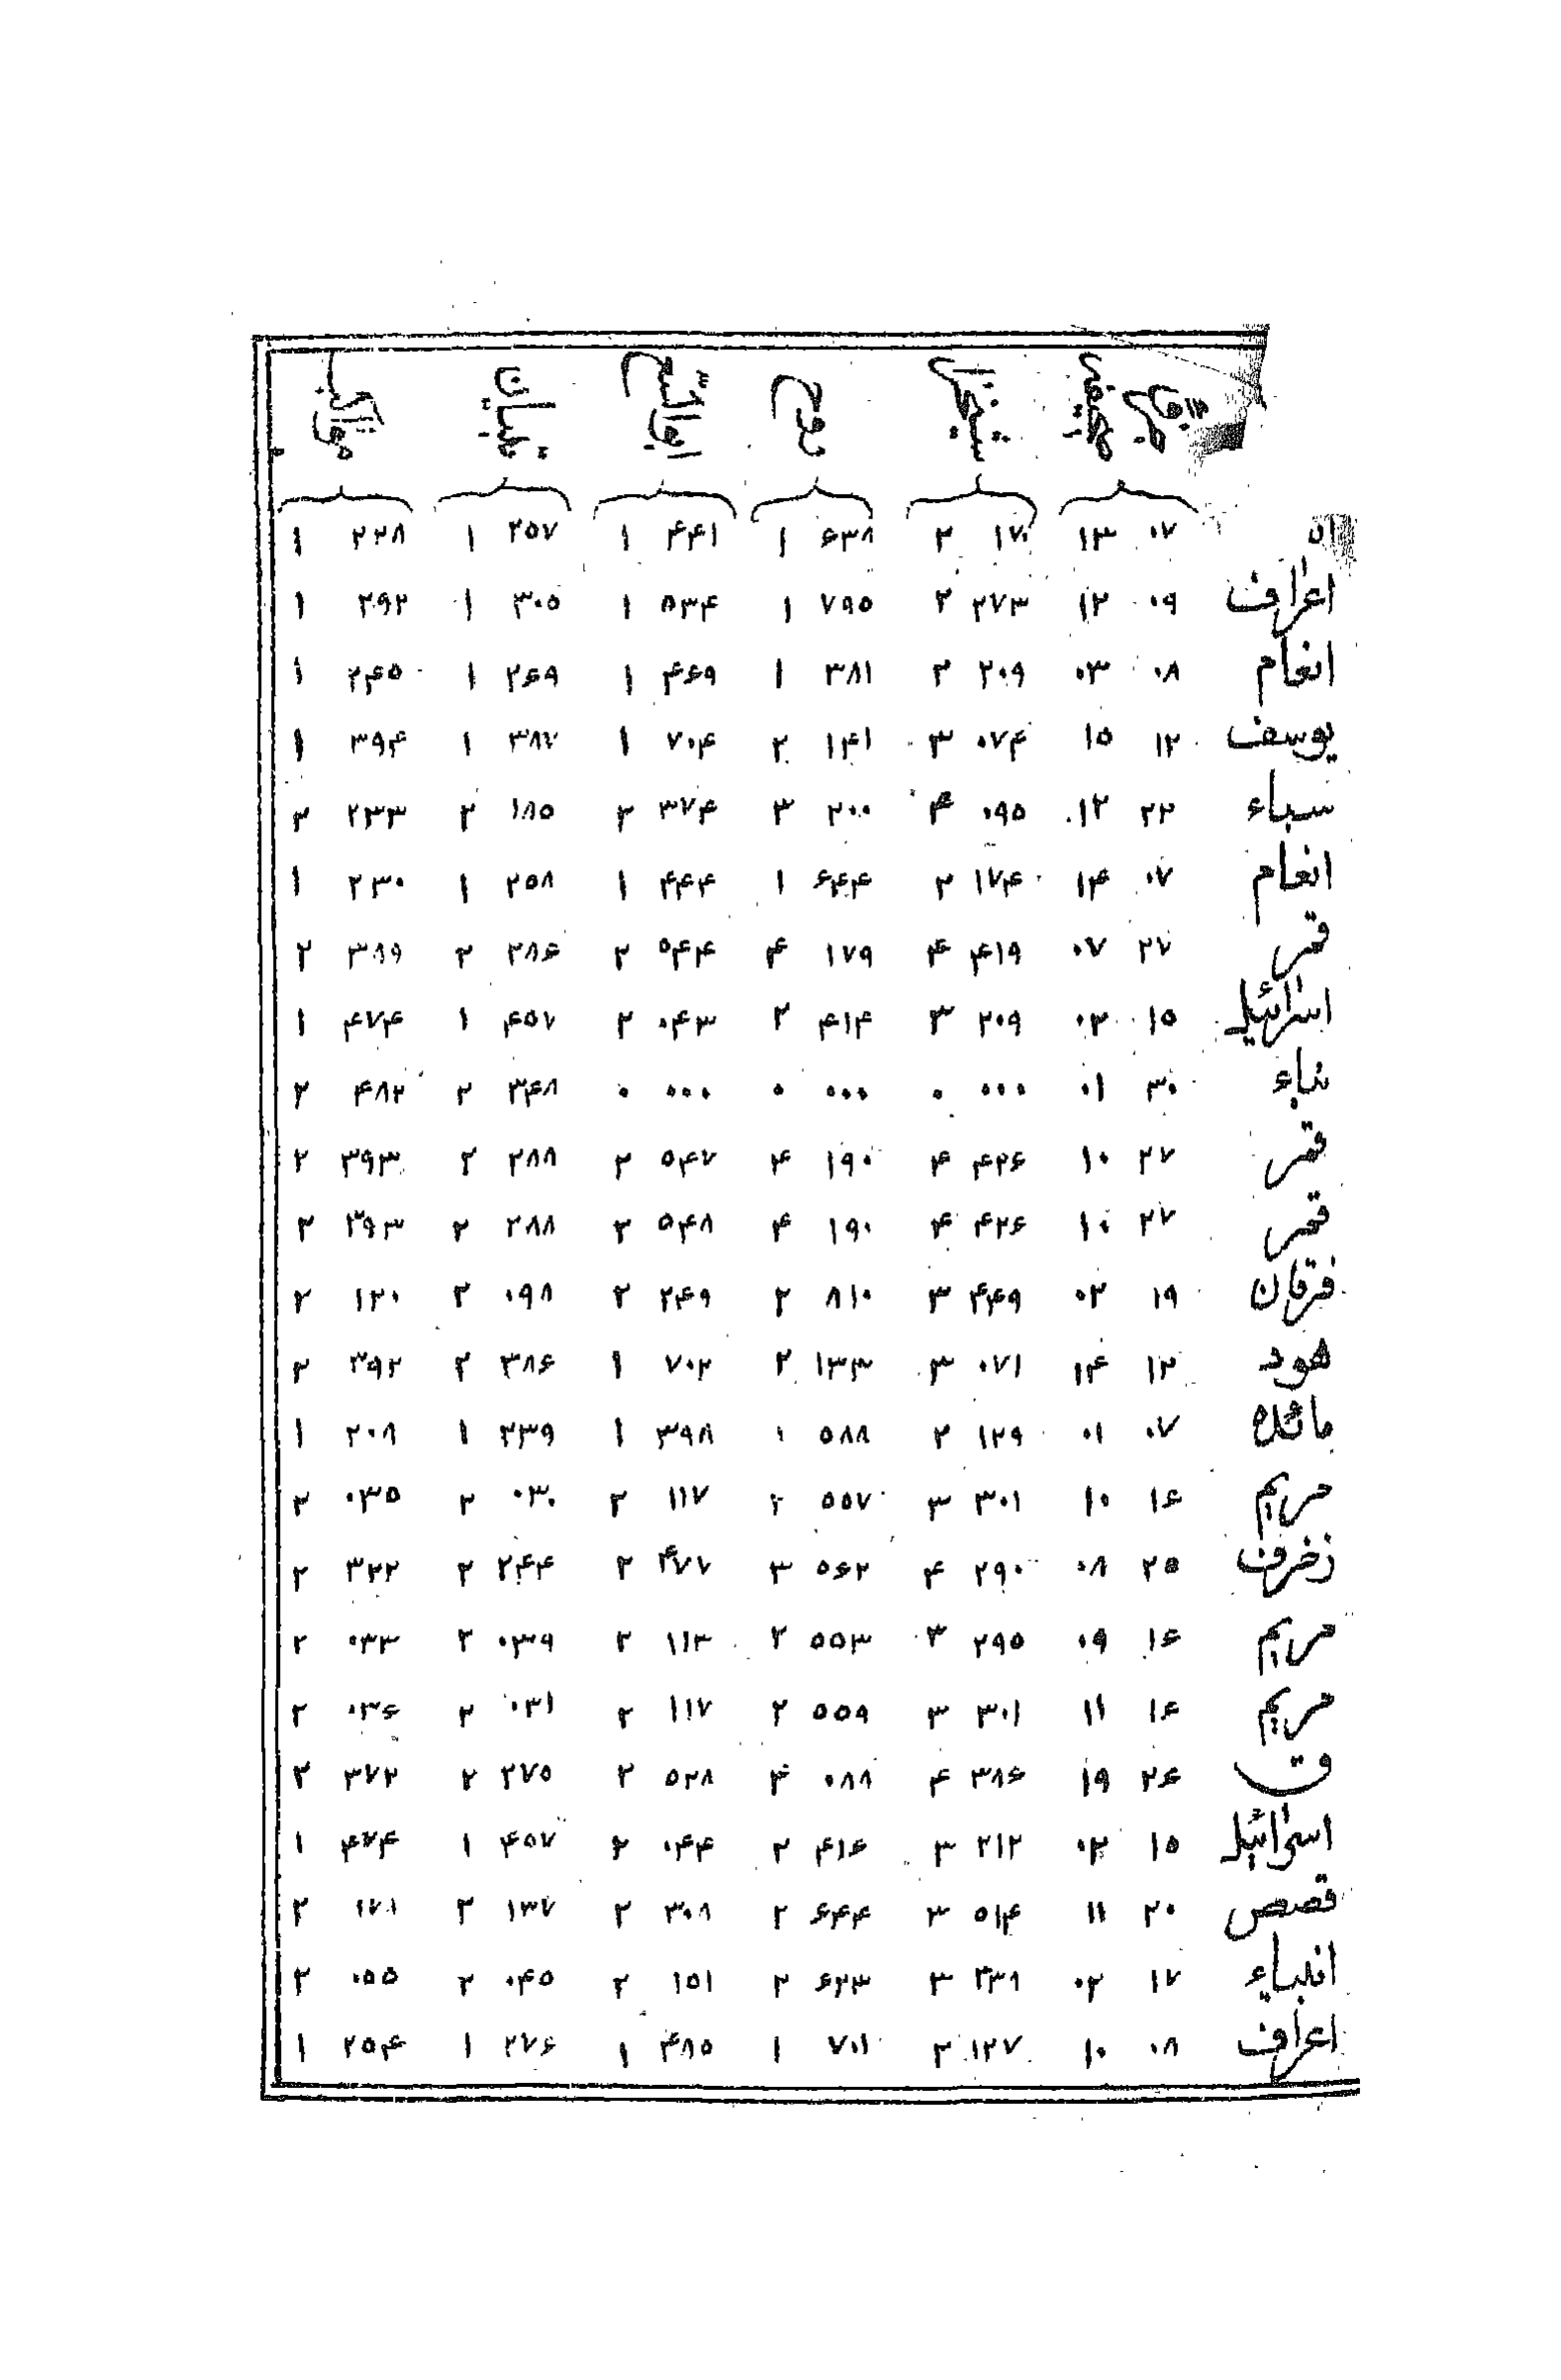 اعراف ۰۹ ۱۲ ۲۷۳ ۲ ۷۹۵ ۱ ۵۳۴ ۱ ۳۰۵ ۱ ۲۹۲ ۱
انعام ۰۸ ۰۳ ۲۰۹ ۲ ۳۸۱ ۱ ۴۶۹ ۱ ۲۶۹ ۱ ۲۴۵ ۱
یوسف ۱۲ ۱۵ ۰۷۴ ۳ ۱۴۱ ۲ ۷۰۴ ۱ ۳۸۷ ۱ ۳۹۴ ۱
سباء ۲۲ ۱۲ ۰۹۵ ۴ ۲۰۰ ۳ ۳۷۴ ۲ ۱۸۵ ۲ ۲۳۳ ۲
انعام ۰۷ ۱۴ ۱۷۴ ۲ ۶۴۴ ۱ ۴۴۴ ۱ ۲۵۸ ۱ ۲۳۰ ۱
قمر ۲۷ ۰۷ ۴۱۹ ۴ ۱۷۹ ۴ ۵۴۴ ۲ ۲۸۶ ۲ ۳۸۹ ۲
اسرائیل ۱۵ ۰۲ ۲۰۹ ۳ ۴۱۴ ۲ ۰۴۳ ۲ ۴۵۷ ۱ ۴۷۴ ۱
نباء ۳۰ ۰۱ ۰۰۰ ۰ ۰۰۰ ۰ ۰۰۰ ۰ ۳۴۸ ۲ ۴۸۲ ۲
قمر ۲۷ ۱۰ ۴۲۶ ۴ ۱۹۰ ۴ ۵۴۷ ۲ ۲۸۸ ۲ ۳۹۳ ۲
قمر ۲۷ ۱۰ ۴۲۶ ۴ ۱۹۰ ۴ ۵۴۸ ۲ ۲۸۸ ۲ ۳۹۳ ۲
فرقان ۱۹ ۰۲ ۴۴۹ ۳ ۸۱۰ ۲ ۲۴۹ ۲ ۰۹۸ ۲ ۱۲۰ ۲
هود ۱۲ ۱۴ ۰۷۱ ۳ ۱۳۳ ۲ ۷۰۲ ۱ ۳۸۶ ۲ ۳۹۲ ۲
مائده ۰۷ ۰۱ ۱۲۹ ۲ ۵۸۸ ۱ ۳۹۸ ۱ ۲۳۹ ۱ ۲۰۸ ۱
مریم ۱۶ ۱۰ ۳۰۱ ۳ ۵۵۷ ۲ ۱۱۷ ۲ ۰۳۰ ۲ ۰۳۵ ۲
زخرف ۲۵ ۰۸ ۲۹۰ ۴ ۵۶۲ ۳ ۴۷۷ ۲ ۲۴۴ ۲ ۳۲۲ ۲
مریم ۱۶ ۰۹ ۲۹۵ ۳ ۵۵۳ ۲ ۱۱۳ ۲ ۰۳۹ ۲ ۰۳۳ ۲
مریم ۱۶ ۱۱ ۳۰۱ ۳ ۵۵۹ ۲ ۱۱۷ ۲ ۰۳۱ ۲ ۰۳۶ ۲
ق ۲۶ ۱۹ ۳۸۶ ۴ ۰۸۸ ۴ ۵۲۸ ۲ ۲۷۵ ۲ ۳۷۲ ۲
اسرائیل ۱۵ ۰۲ ۲۱۲ ۳ ۴۱۶ ۲ ۰۴۴ ۲ ۴۵۷ ۱ ۴۷۴ ۱
قصص ۲۰ ۱۱ ۵۱۴ ۳ ۶۴۴ ۲ ۳۰۸ ۲ ۱۳۷ ۲ ۱۷۱ ۲
انبیاء ۱۷ ۰۲ ۳۳۱ ۳ ۶۲۳ ۲ ۱۵۱ ۲ ۰۴۵ ۲ ۰۵۵ ۲
اعراف ۰۸ ۱۰ ۱۲۷ ۲ ۷۰۱ ۱ ۴۸۵ ۱ ۲۷۶ ۱ ۲۵۴ ۱